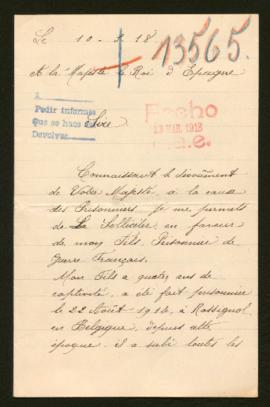 Le 10-3-18
13565.
A la Majesté le Roi d'Espagne
Pedir informes
que se hace
Devolver
Sire.
Hecho
13 MAR. 1918
Connaissant le dévoûment
de Votre Majesté, à la cause
des Prisonniers je me permets
de La Solliciter en faveur
de mon Fils, Prisonnier de
Guerre Français.
Mon Fils a quatre ans de
captivité, a été fait prisonnier
le 22 Août 1914, à Rossignol
en Belgique, depuis cette
époque il a subi toutes les